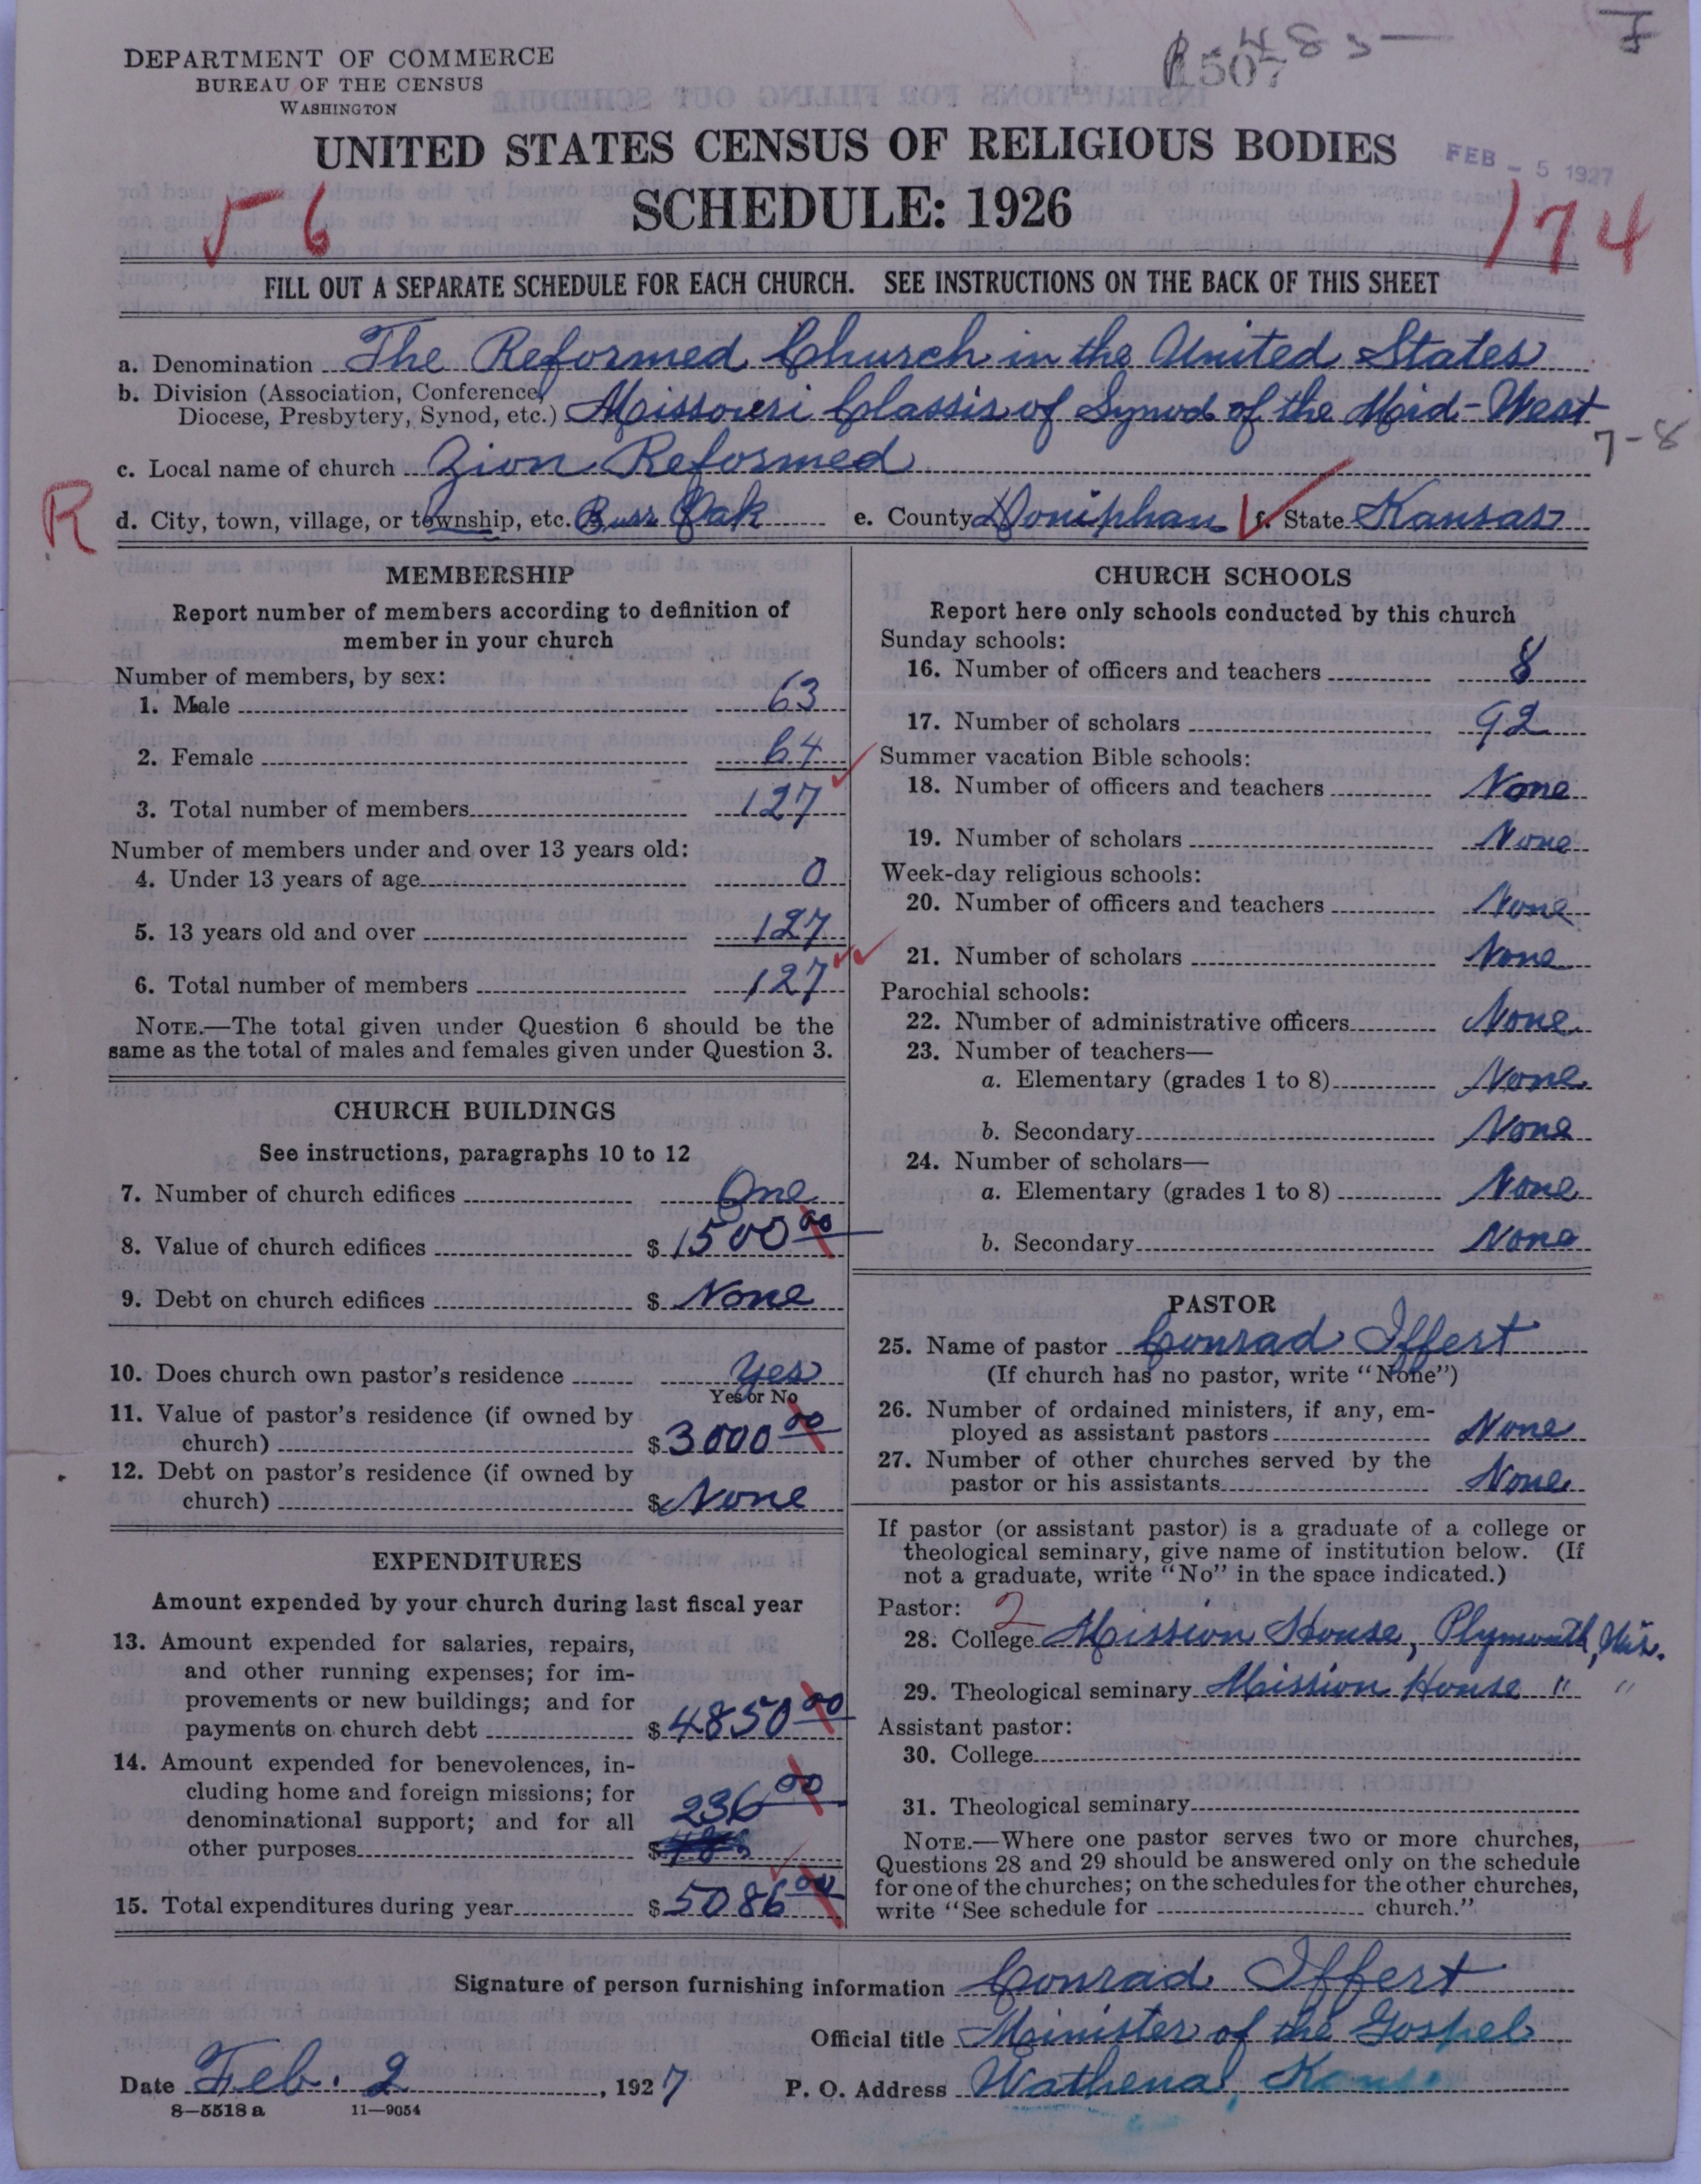 DEPARTMENT OF COMMERCE
BUREAU OF THE CENSUS
WASHINGTON
UNITED STATES CENSUS OF RELIGIOUS BODIES
FEB - 5 1927
SCHEDULE: 1926
56
174
FILL OUT A SEPARATE SCHEDULE FOR EACH CHURCH. SEE INSTRUCTIONS ON THE BACK OF THIS SHEET
a. Denomination The Reformed Church in the United States
b. Division (Association, Conference,
Diocese, Presbytery, Synod, etc.) Missouri Classis of Synod of the Mid-West
7-8
c. Local name of church Zion Reformed
R
d. City, town, village, or township, etc. Burr Oak e. County Doniphan f. State Kansas
MEMBERSHIP
Report number of members according to definition of
member in your church
Number of members, by sex:
1. Male 63
2. Female 64
3. Total number of members 127
Number of members under and over 13 years old:
4. Under 13 years of age 0
5. 13 years old and over 127
6. Total number of members 127
NOTE.—The total given under Question 6 should be the
same as the total of males and females given under Question 3.
CHURCH BUILDINGS
See instructions, paragraphs 10 to 12
7. Number of church edifices One
8. Value of church edifices $ 1500 00
9. Debt on church edifices $ None
10. Does church own pastor's residence Yes
Yes or No
11. Value of pastor's residence (if owned by
church) $ 3000 00
12. Debt on pastor's residence (if owned by
church) $ None
EXPENDITURES
Amount expended by your church during last fiscal year
13. Amount expended for salaries, repairs,
and other running expenses; for im-
provements or new buildings; and for
payments on church debt $ 4850 00
14. Amount expended for benevolences, in-
cluding home and foreign missions; for
denominational support; and for all 236 00
other purposes $
15. Total expenditures during year $ 5086 00
CHURCH SCHOOLS
Report here only schools conducted by this church
Sunday schools:
16. Number of officers and teachers 8
17. Number of scholars 92
Summer vacation Bible schools:
18. Number of officers and teachers None
19. Number of scholars None
Week-day religious schools:
20. Number of officers and teachers None
21. Number of scholars None
Parochial schools:
22. Number of administrative officers None
23. Number of teachers—
a. Elementary (grades 1 to 8) None
b. Secondary None
24. Number of scholars—
a. Elementary (grades 1 to 8) None
b. Secondary None
PASTOR
25. Name of pastor Conrad Iffert
(If church has no pastor, write "None")
26. Number of ordained ministers, if any, em-
ployed as assistant pastors None
27. Number of other churches served by the
pastor or his assistants None
If pastor (or assistant pastor) is a graduate of a college or
theological seminary, give name of institution below. (If
not a graduate, write "No" in the space indicated.)
Pastor: 2
28. College Mission House, Plymouth, Wis.
29. Theological seminary Mission House " "
Assistant pastor:
30. College
31. Theological seminary
NOTE.—Where one pastor serves two or more churches,
Questions 28 and 29 should be answered only on the schedule
for one of the churches; on the schedules for the other churches,
write "See schedule for church."
Signature of person furnishing information Conrad Iffert
Official title Minister of the Gospel
Date Feb. 2, 1927 P. O. Address Wathena, Kans
8—5518 a 11—9054